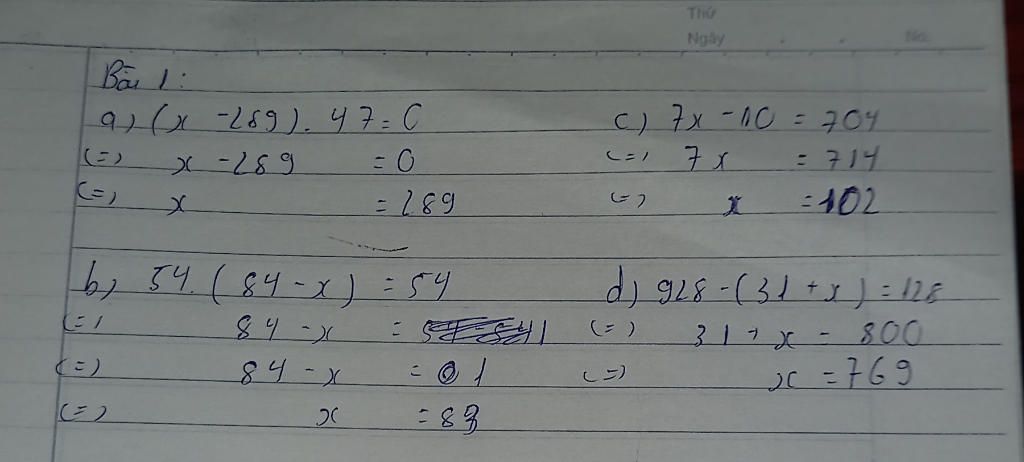 Thứ
Ngày No.
Bài 1:
a) (x - 289). 47 = 0
(=) x - 289 = 0
(=) x = 289
c) 7x - 10 = 704
(=) 7x = 714
(=) x = 102
b) 54. (84 - x) = 54
(=) 84 - x = 1
(=) 84 - x = 1
(=) x = 83
d) 928 - (31 + x) = 128
(=) 31 + x = 800
(=) x = 769